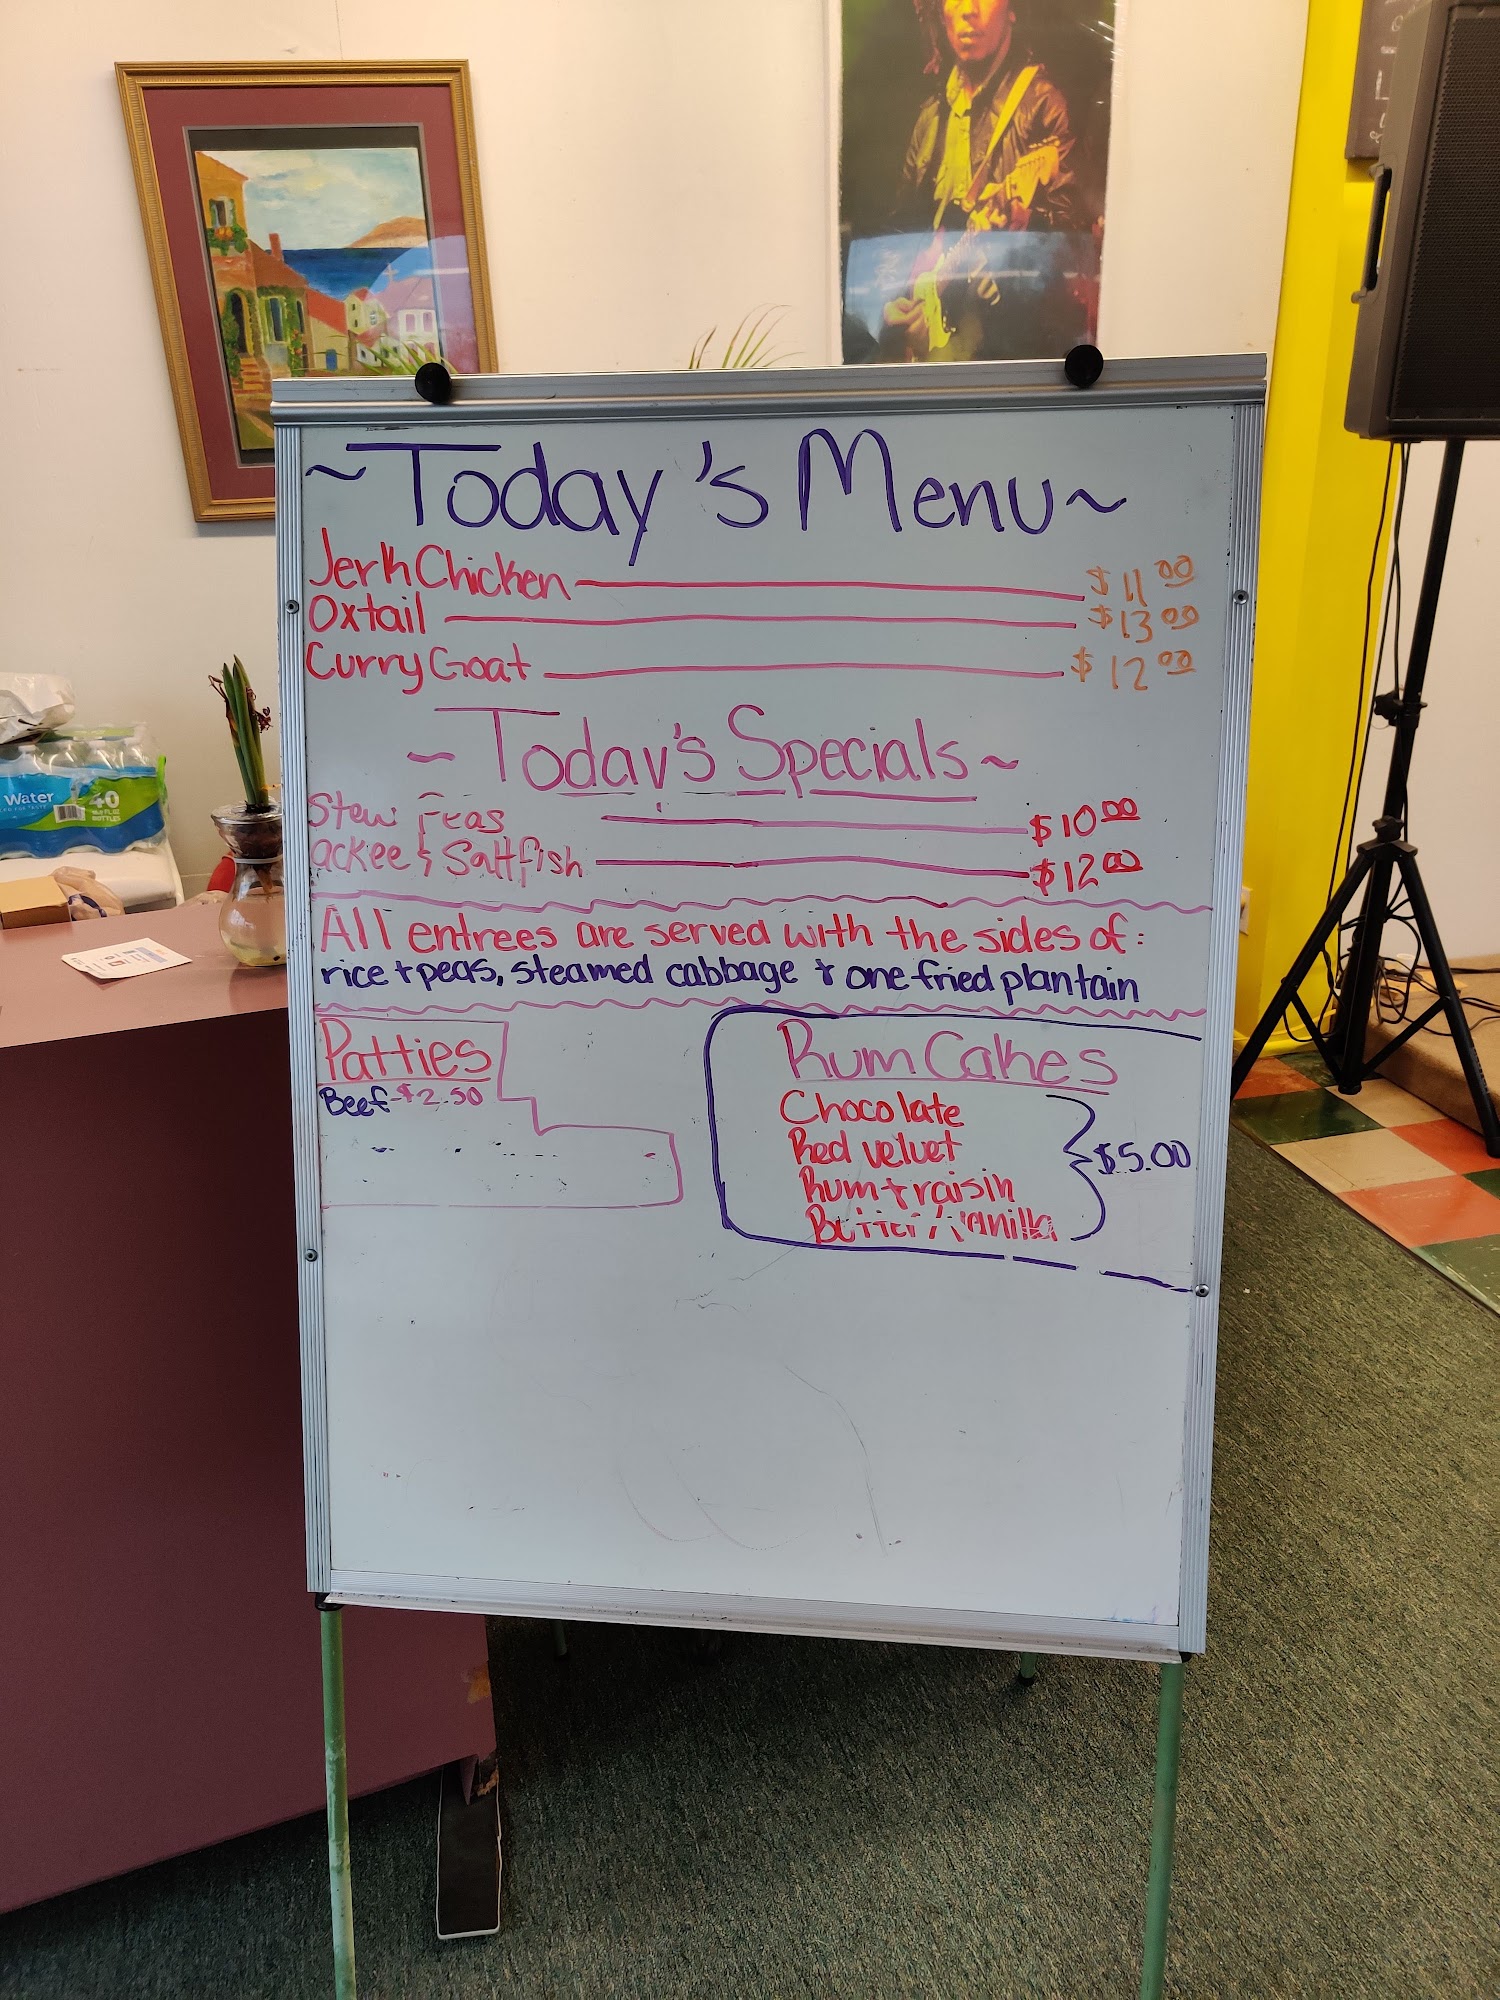 ~Today's Menu~
Jerk Chicken $11.00
Oxtail $13.00
Curry Goat $12.00
~Today's Specials~
Stew Peas $10.00
ackee & Saltfish $12.00
All entrees are served with the sides of:
rice + peas, steamed cabbage + one fried plantain
Patties
Beef-$2.50
Rum Cakes
Chocolate
Red velvet
Rum + raisin
Butter/Vanilla
$5.00
Water
40
BOTTLES